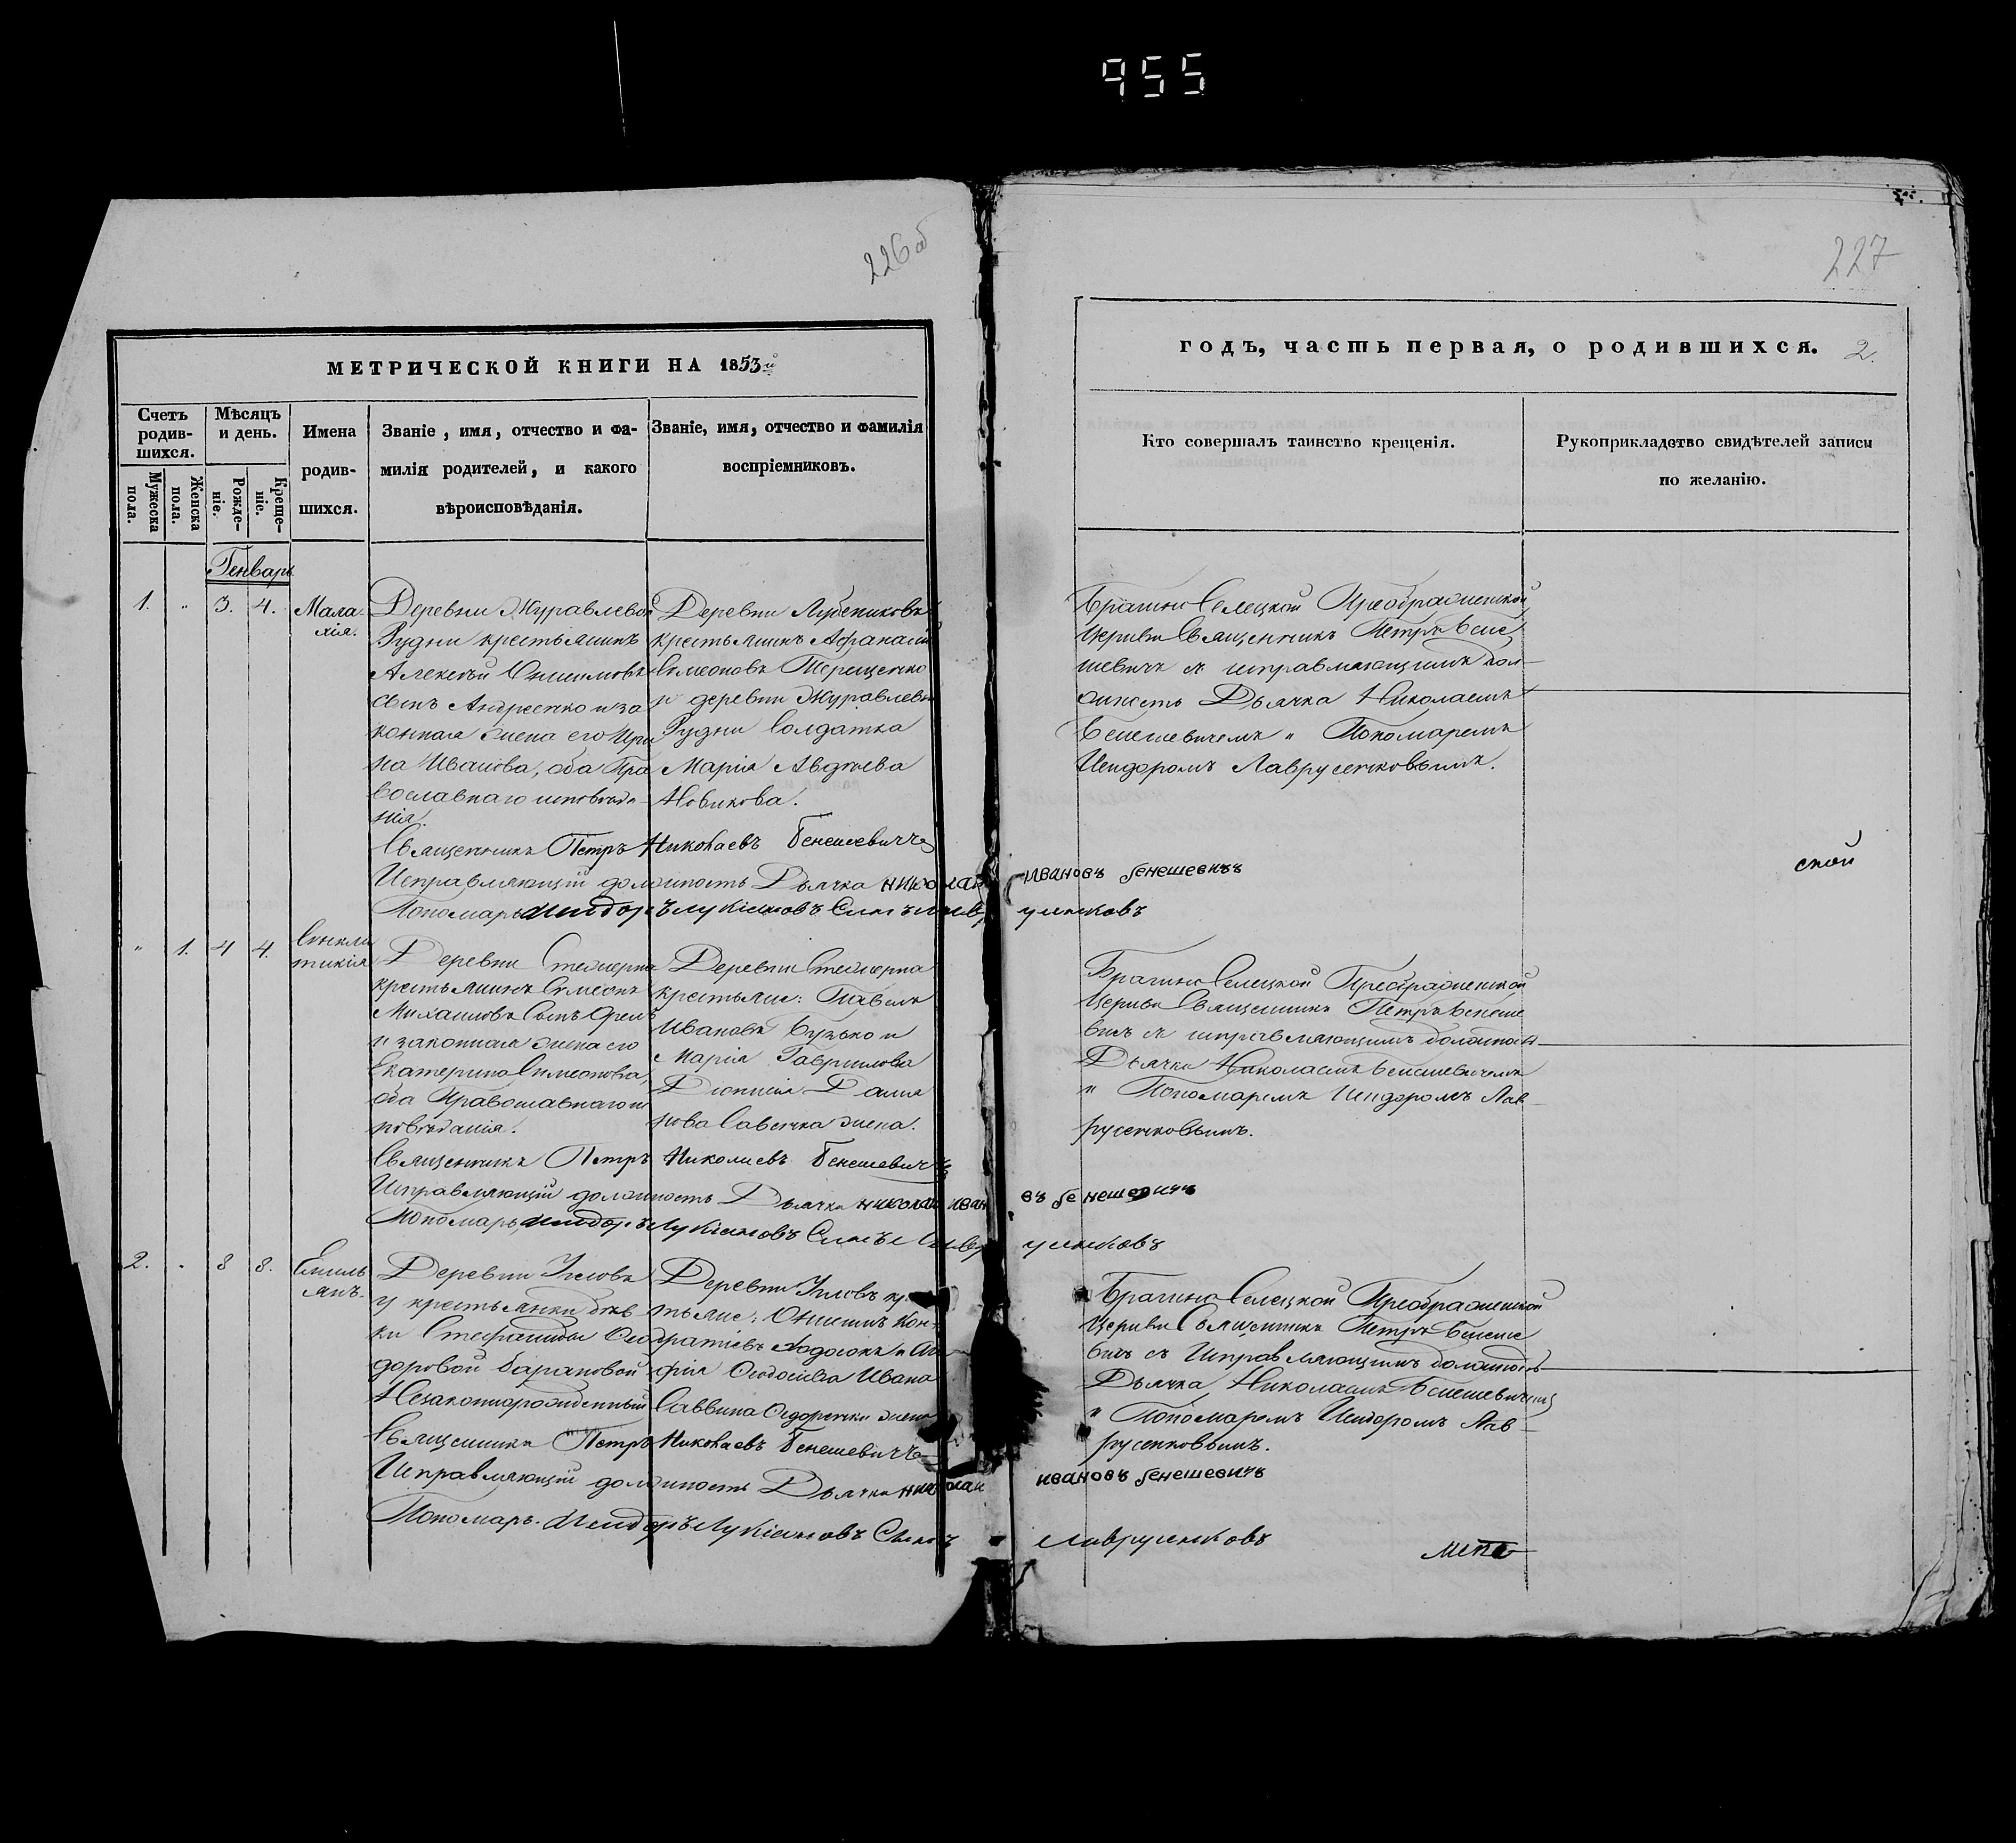 955
226об
227
МЕТРИЧЕСКОЙ КНИГИ НА 1853й
Счетъ родив-шихся.
Мѣсяцъ и день.
Имена родив-шихся.
Званіе, имя, отчество и фа-
милія родителей, и какого
вѣроисповѣданія.
Званіе, имя, отчество и фамилія
воспріемниковъ.
Мужеска пола.
Женска пола.
Рожде-ніе.
Креще-ніе.
годъ, часть первая, о родившихся. 2.
Кто совершалъ таинство крещенія.
Рукоприкладство свидѣтелей записи
по желанію.
Генварь
1. " 3. 4. Мала
хія.
Деревни Журавлевой
Рудни крестьянинъ
Алексѣй
сынъ Андреенко и за
конная жена его Ири
на Иванова, оба Пра
вославнаго исповѣда
нія.
Деревни
крестьянинъ Афанасій
Симеоновъ Терещенко
и деревни Журавлевой
Рудни Солдатка
Марія Авдѣева
Новикова.
Брагино Селецкой Преображенской
Церкви Священникъ Петръ Бене
шевичъ съ исправляющимъ дол
жность Дьячка Николаемъ
Бенешевичемъ и Пономаремъ
Исидоромъ Лаврусенковымъ.
Священникъ Петръ Николаевъ Бенешевичъ
Исправляющій должность Дьячка николай ивановъ бенешевичъ
Пономарь исидоръ лукіановъ Сынъ
ской
" 1. 4 4. Синкли
тикія
Деревни
крестьянинъ Симеонъ
Михаиловъ Сынъ
и законная жена его
Екатерина Симеонова,
оба Православнаго ис
повѣданія.
Деревни
крестьяне: Павелъ
Ивановъ Бузько и
Марія Гаврилова
Діонисія
нова Савенка жена.
Брагино Селецкой Преображенской
Церкви Священникъ Петръ Бенеше
вичъ съ исправляющимъ должность
Дьячка Николаемъ Бенешевичемъ
и Пономаремъ Исидоромъ Лав
русенковымъ.
Священникъ Петръ Николаевъ Бенешевичъ
Исправляющій должность Дьячка николай ивановъ бенешевичъ
Пономарь исидоръ Лукіановъ Сынъ
2. " 8 8. Емиль
янъ.
Деревни
у крестьянки дѣв
ки Стефаниды Ѳео
доровой Барановой
Незаконнорожденный
Деревни
тьяне: Онисимъ Кон
дратіевъ и
фія Ѳеодосіева Ивана
Саввина Ѳедоренки жена
Брагино Селецкой Преображенской
Церкви Священникъ Петръ Бенеше
вичъ съ Исправляющимъ должность
Дьячка Николаемъ Бенешевичемъ
и Пономаремъ Исидоромъ Лав
русенковымъ.
Священникъ Петръ Николаевъ Бенешевичъ
Исправляющій должность Дьячка николай ивановъ бенешевичъ
Пономарь исидоръ Лукіановъ Сынъ лаврусенковъ